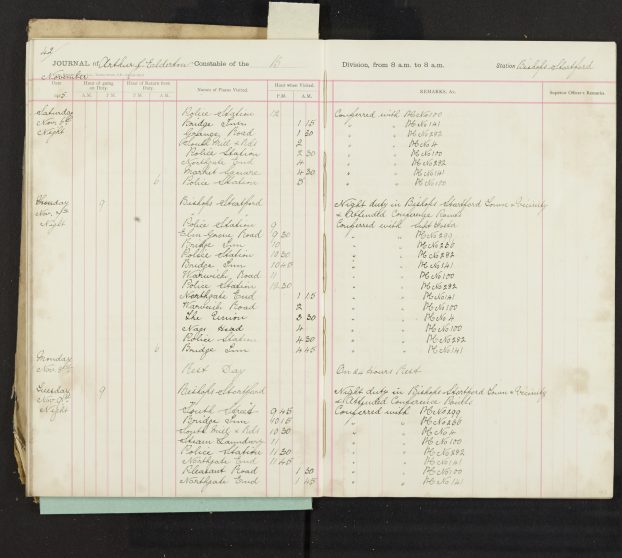 42
JOURNAL of Arthur J. Elderton Constable of the B Division, from 8 a.m. to 8 a.m. Station Bishops Stortford
November
Date Hour of going on Duty. Hour of Return from Duty. Names of Places Visited. Hour when Visited. REMARKS, &c. Superior Officer's Remarks.
A.M. P.M. A.M. P.M. P.M. A.M.
Saturday Police Station 12 Conferred with PC No 100
Nov. 6th Bridge Inn 1 15 " " PC No 141
Night Grange Road 1 30 " " PC No 292
South Mill & Rds 2 " " PC No 4
Police Station 2 30 " " PC No 100
Northgate End 4 " " PC No 292
Market Square 4 30 " " PC No 141
6 Police Station 5 " " PC No 100
9 Bishops Stortford Night duty in Bishops Stortford Town & Vicinity
Nov. & Attended Conference Points
Night Police Station 9 Conferred with
Elm Grove Road 9 30 " " PC No 299
Bridge Inn 10 " " PC No 250
Police Station 10 30 " " PC No 292
Bridge Inn 10 45 " " PC No 141
Warwick Road 11 " " PC No 100
Police Station 11 30 " " PC No 292
Northgate End 1 15 " " PC No 141
Warwick Road 2 " " PC No 100
The Union 3 30 " " PC No 4
Nags Head 4 " " PC No 100
Police Station 4 30 " " PC No 292
6 Bridge Inn 4 45 " " PC No 141
Monday
Nov. 8th Rest Day On 24 hours Rest
Tuesday 9 Bishops Stortford Night duty in Bishops Stortford Town & Vicinity
Nov. 9th & Attended Conference Points
Night South Street 9 45 Conferred with PC No 299
Bridge Inn 10 15 " " PC No 250
South Mill & Rds 10 30 " " PC No 4
Steam Laundry 11 " " PC No 100
Police Station 11 30 " " PC No 292
Northgate End 11 45 " " PC No 141
Pleasant Road 1 30 " " PC No 100
Northgate End 1 45 " " PC No 141